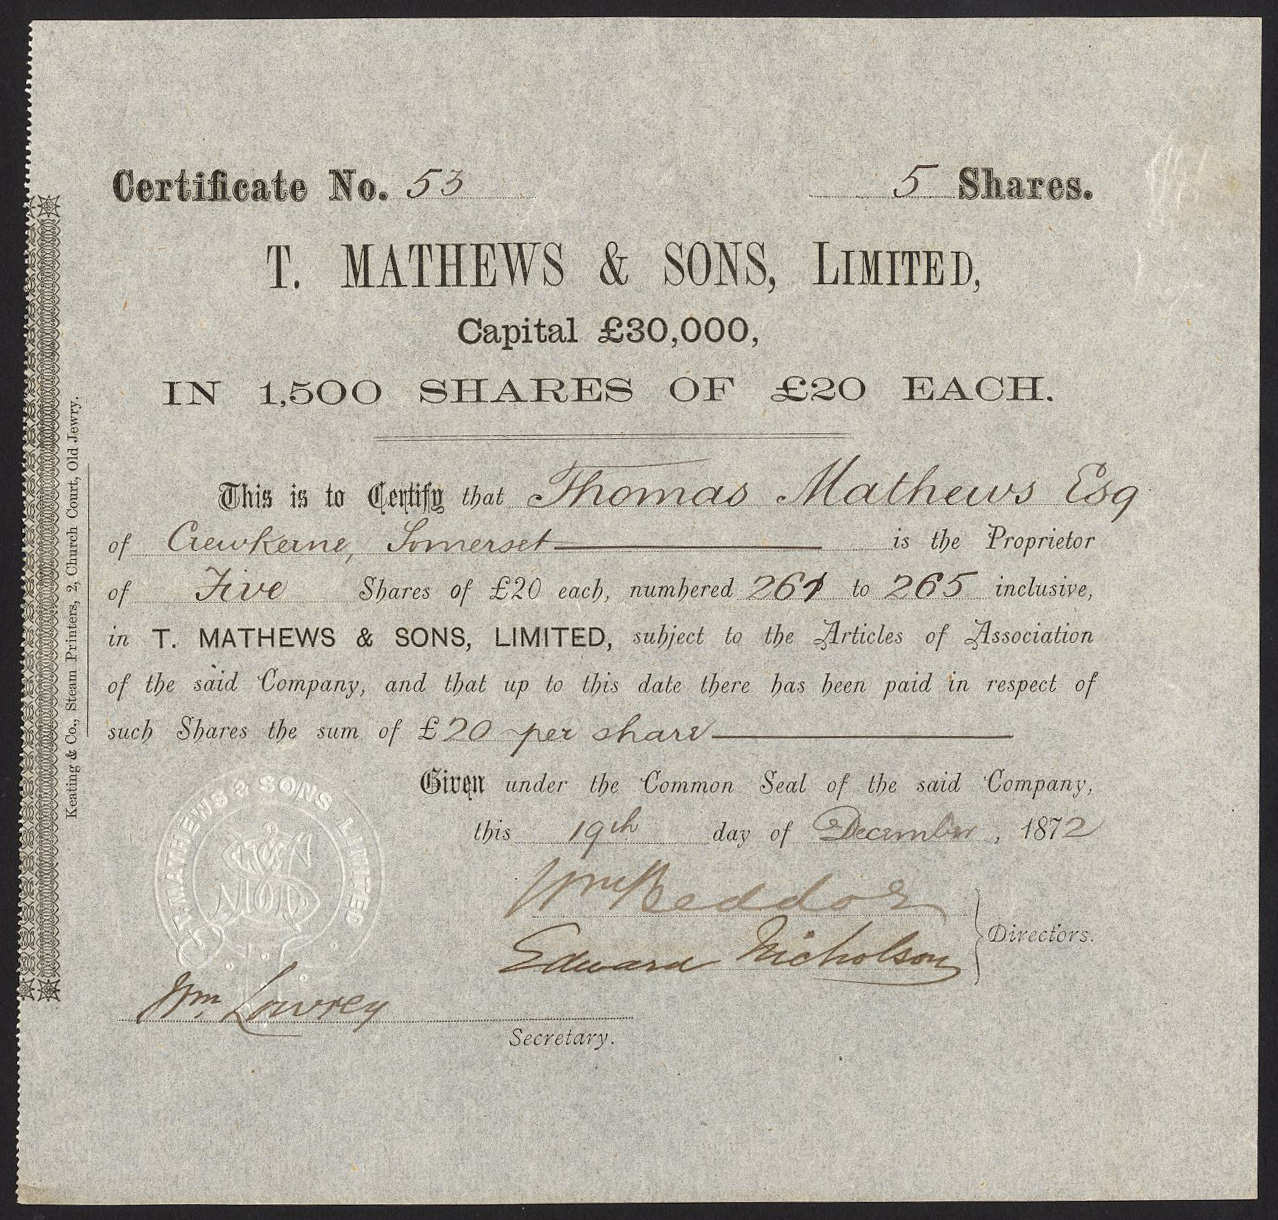 Certificate No. 53 5 Shares.
T. MATHEWS & SONS, LIMITED,
Capital £30,000,
IN 1,500 SHARES OF £20 EACH.
This is to Certify that Thomas Mathews Esq
of Crewkerne, Somerset is the Proprietor
of Five Shares of £20 each, numbered 261 to 265 inclusive,
in T. MATHEWS & SONS, LIMITED, subject to the Articles of Association
of the said Company, and that up to this date there has been paid in respect of
such Shares the sum of £20 per share
Given under the Common Seal of the said Company,
this 19th day of December, 1872
Wm Beddoe
Edward Nicholson
Directors.
Wm. Lowrey
Secretary.
T. MATHEWS & SONS LIMITED
Keating & Co., Steam Printers, 2, Church Court, Old Jewry.